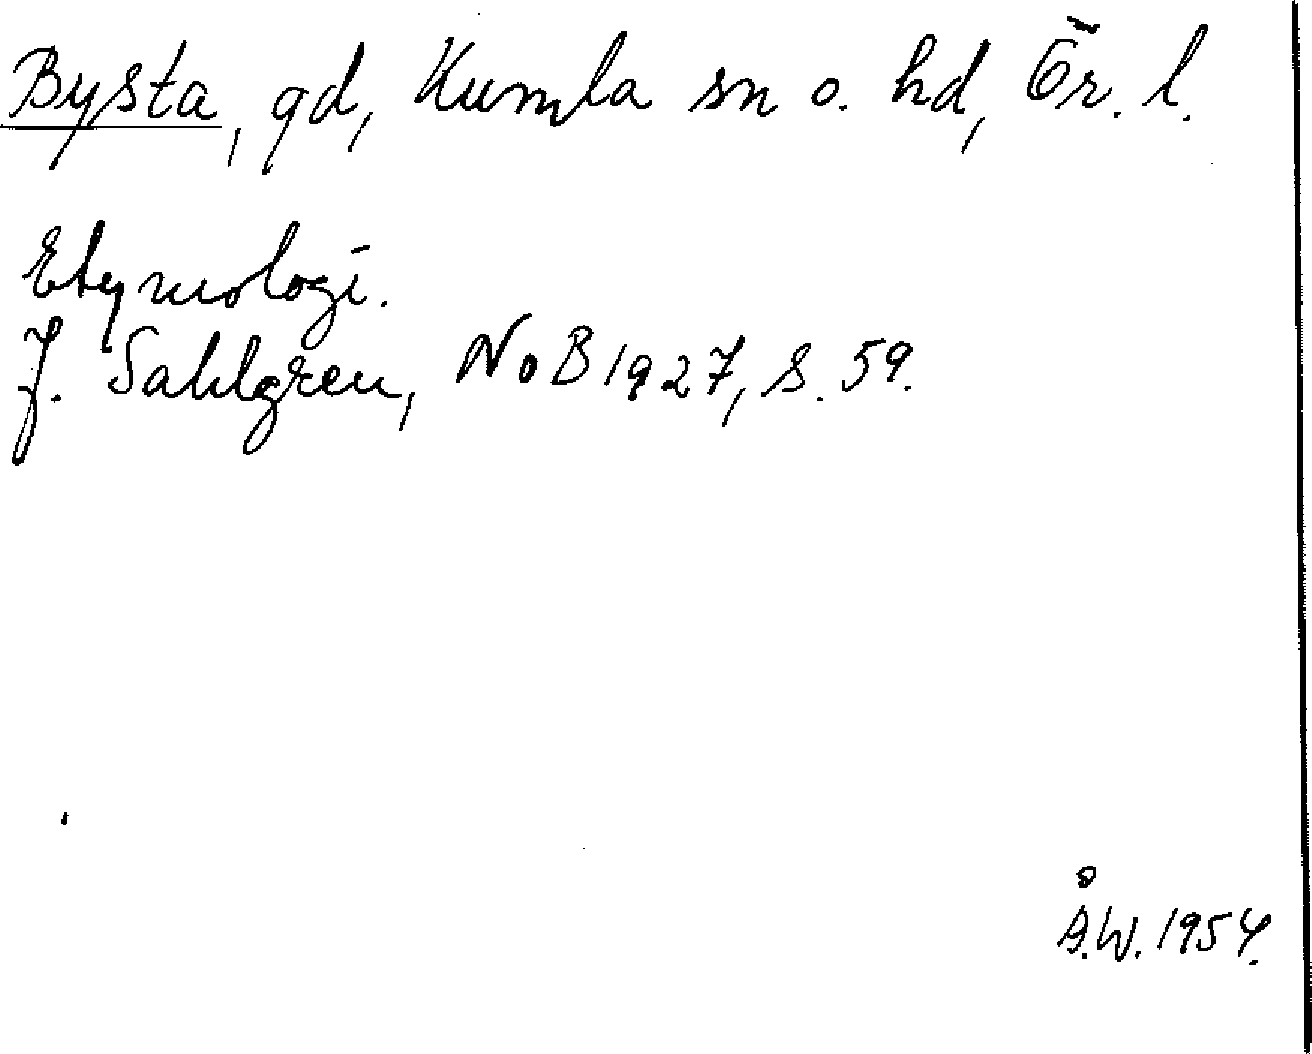 Bysta, gd, Kumla sn o. hd, Ör. l.
Etymologi.
J. Sahlgren, NoB 1927, s. 59.
Å.W. 1954.